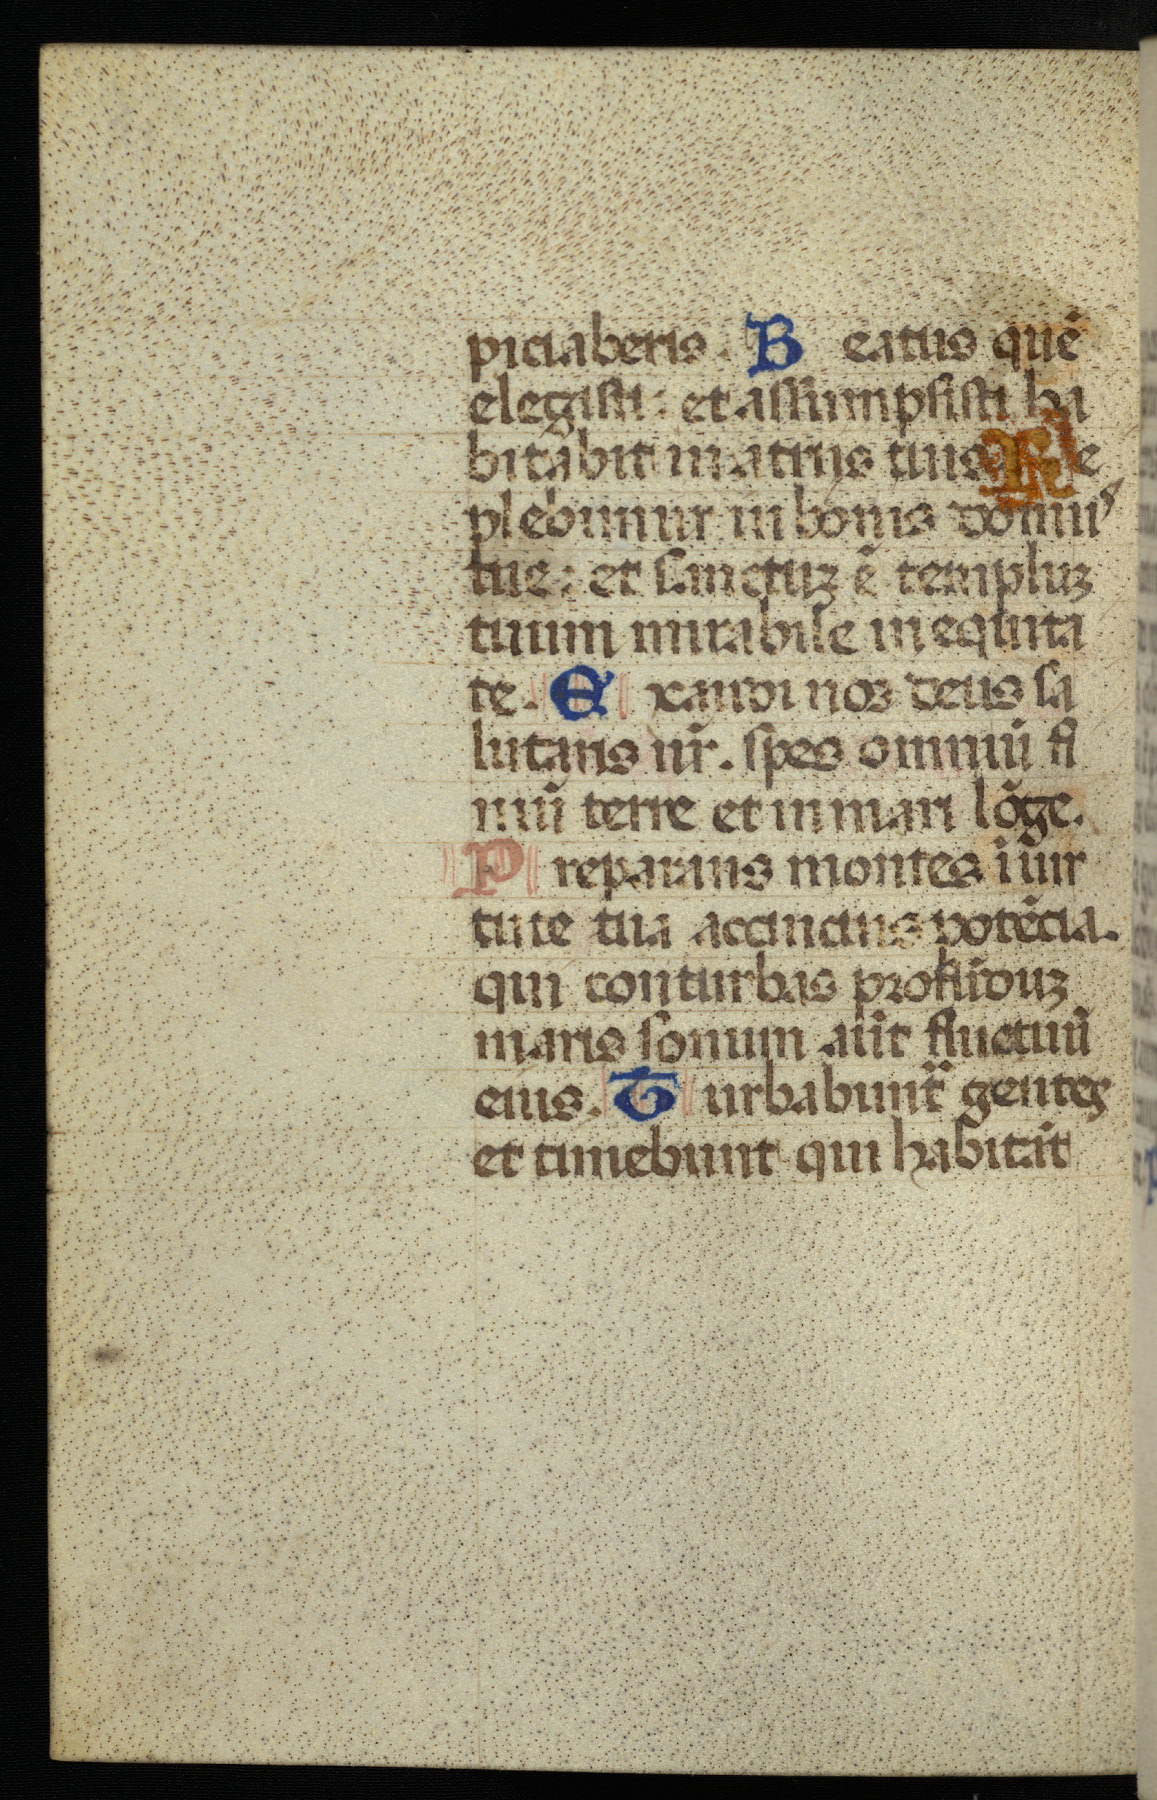 piciaberis. Beatus quē
elegisti: et assumpsisti ha
bitabit in atrijs tuis Re
plebimur in bonis domu᷒
tue: et sanctuʒ ē templuʒ
tuum mirabile in equita
te. Exaudi nos deus sa
lutaris nr̄. spes omniū fi
niū terre et in mari lōge.
Preparans montes ī uir
tute tua accinctus potētia.
qui conturbas profūduʒ
maris sonum aūt fluctuū
eius. Turbabunt᷑ gentes
et timebunt qui habitāt